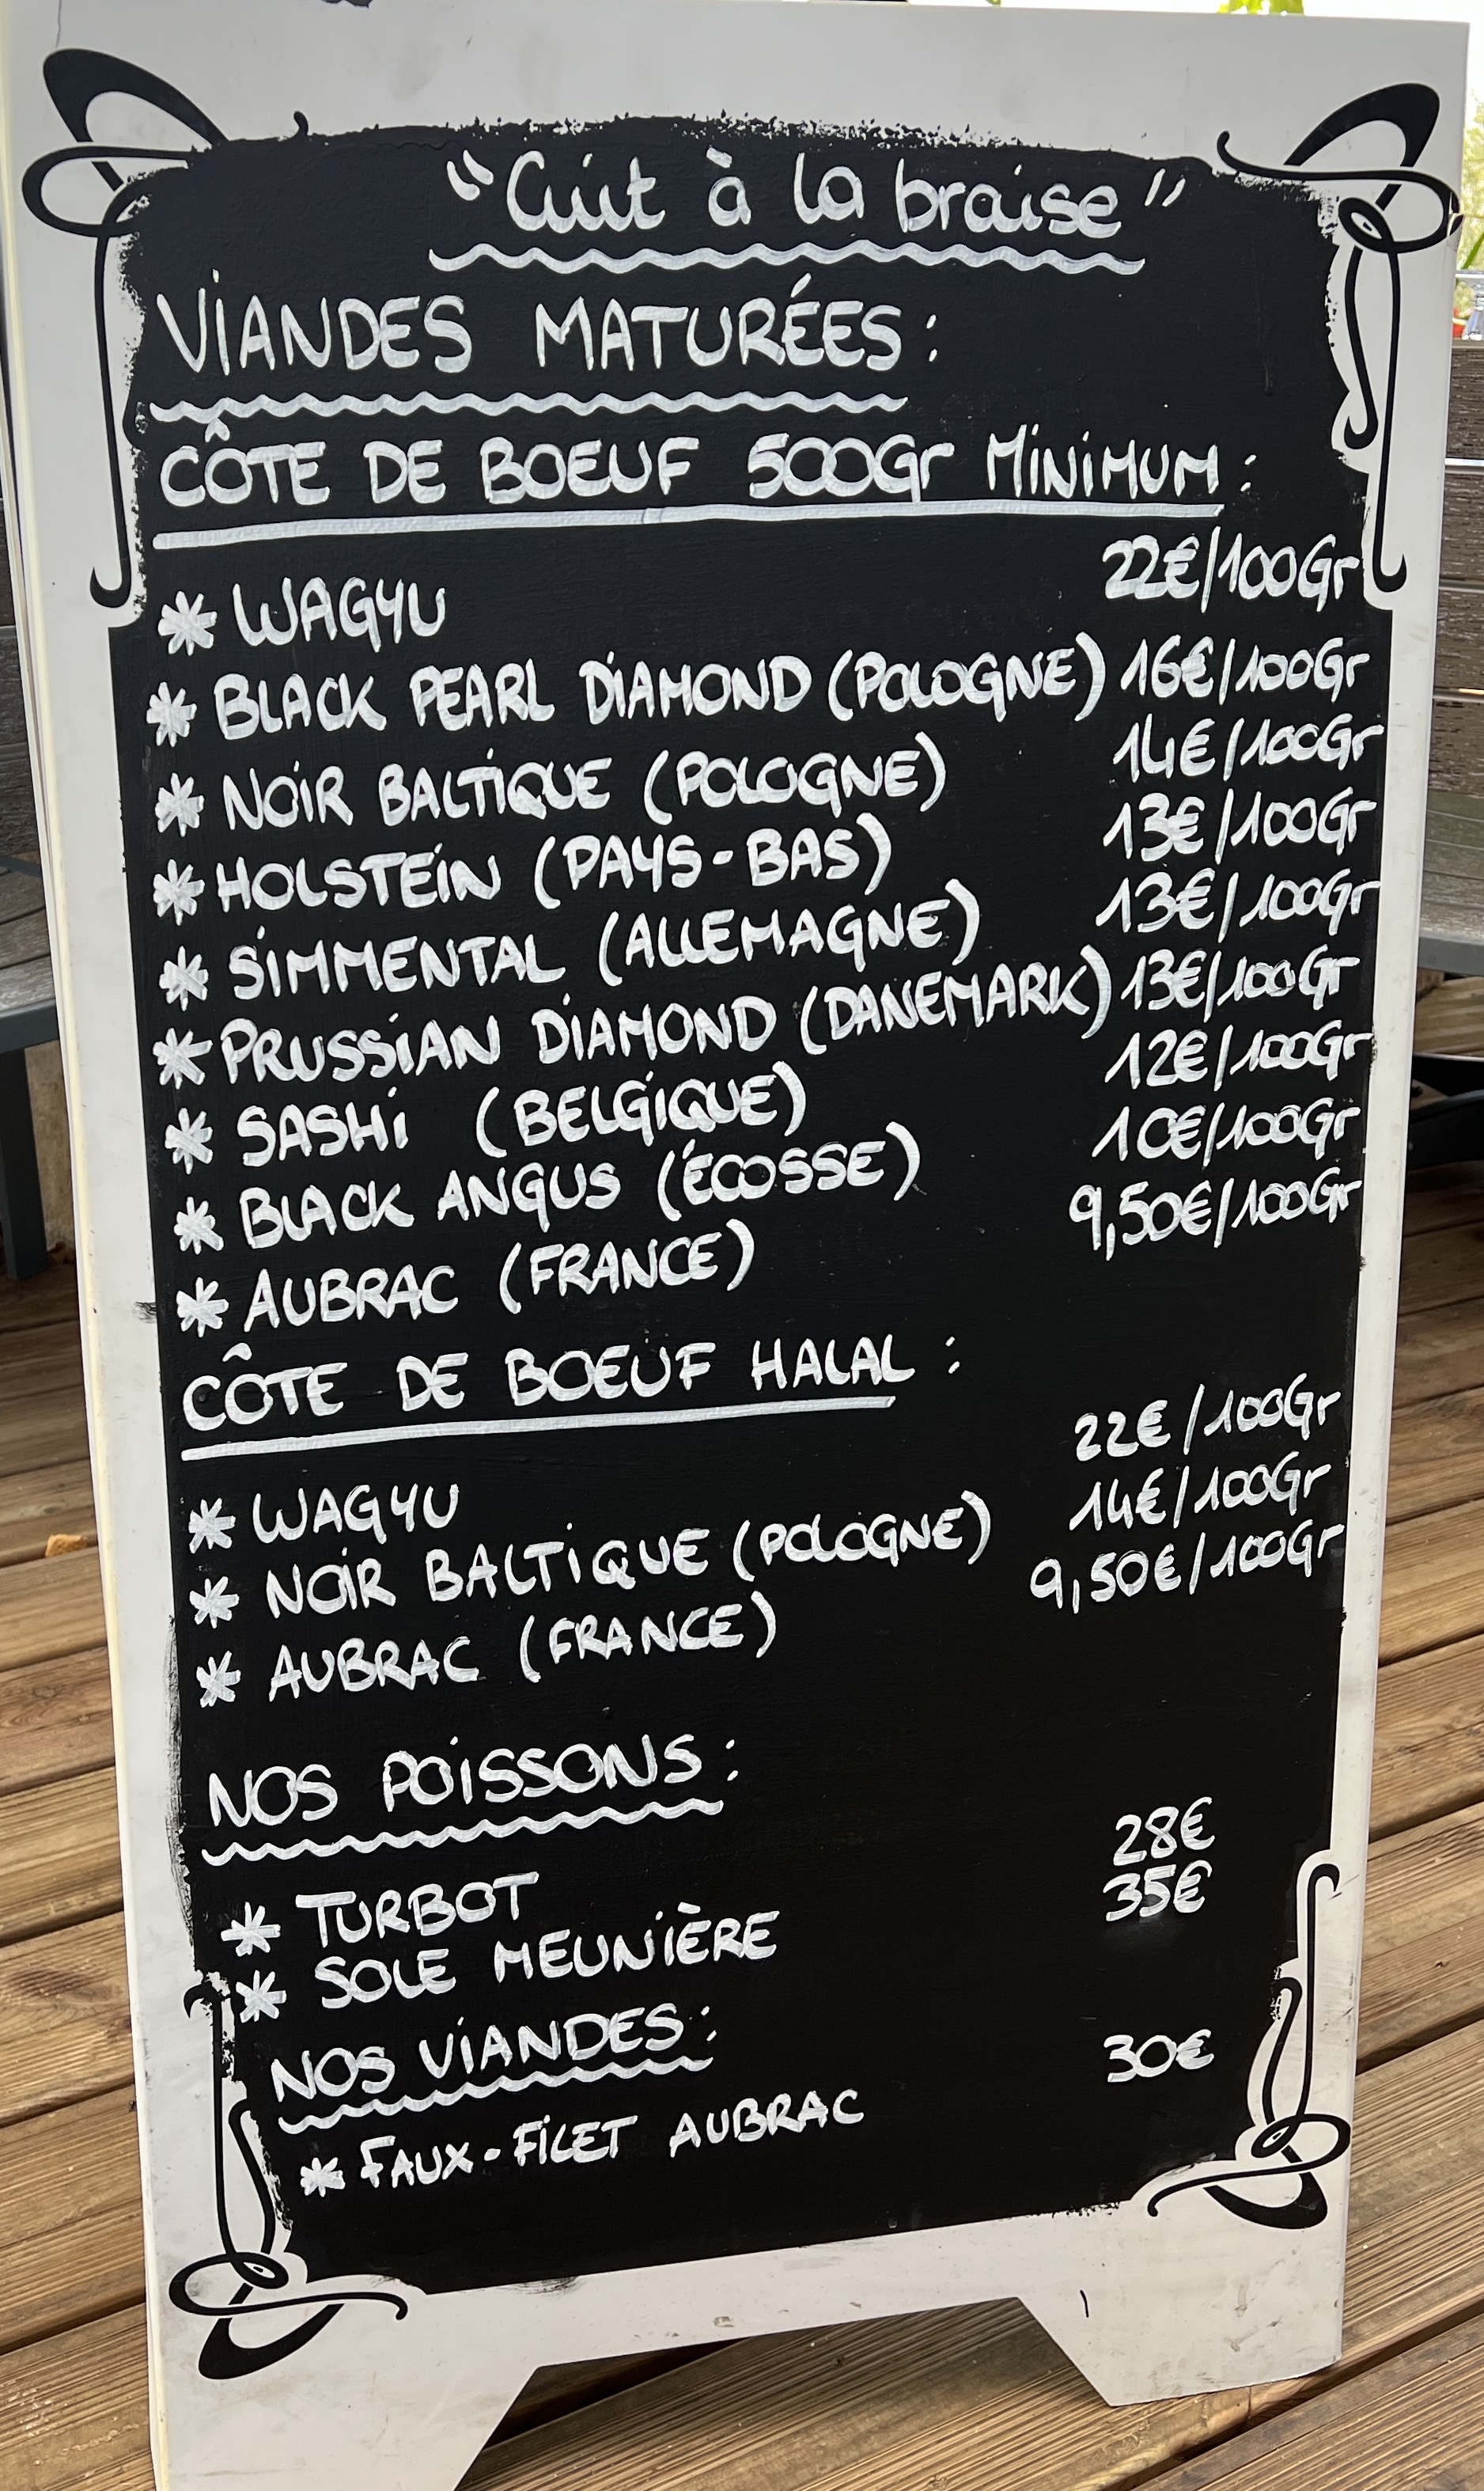 "Cuit à la braise"
VIANDES MATURÉES :
CÔTE DE BOEUF 500Gr MINIMUM :
* WAGYU 22€/100Gr
* BLACK PEARL DIAMOND (POLOGNE) 16€/100Gr
* NOIR BALTIQUE (POLOGNE) 14€/100Gr
* HOLSTEIN (PAYS-BAS) 13€/100Gr
* SIMMENTAL (ALLEMAGNE) 13€/100Gr
* PRUSSIAN DIAMOND (DANEMARK) 13€/100Gr
* SASHI (BELGIQUE) 12€/100Gr
* BLACK ANGUS (ÉCOSSE) 10€/100Gr
* AUBRAC (FRANCE) 9,50€/100Gr
CÔTE DE BOEUF HALAL :
* WAGYU 22€/100Gr
* NOIR BALTIQUE (POLOGNE) 14€/100Gr
* AUBRAC (FRANCE) 9,50€/100Gr
NOS POISSONS :
* TURBOT 28€
* SOLE MEUNIÈRE 35€
NOS VIANDES :
* FAUX-FILET AUBRAC 30€